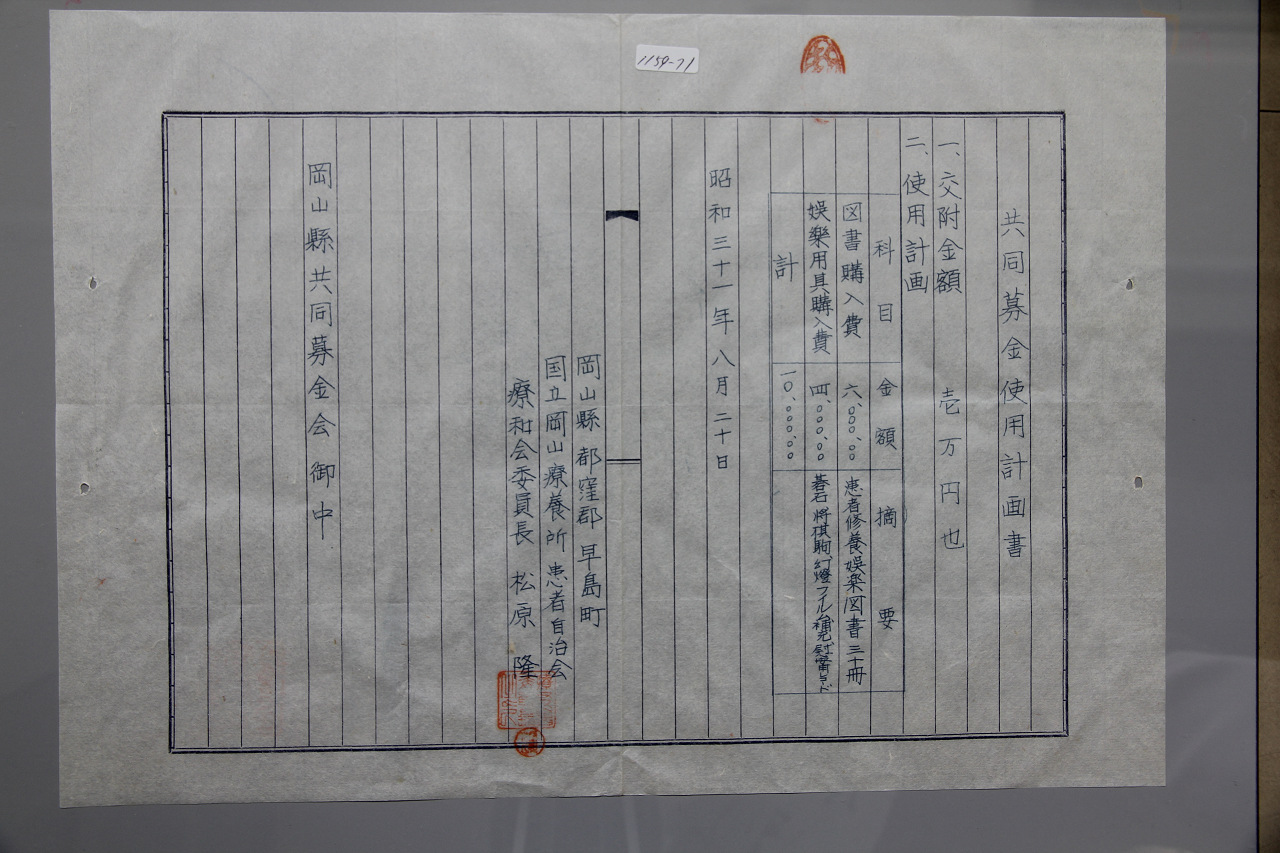 1159-71
共同募金使用計画書
一、交附金額 壱万円也
二、使用計画
科目 金額 摘要
図書購入費 六、〇〇〇、〇〇 患者修養娯楽図書三十冊
娯楽用具購入費 四、〇〇〇、〇〇 碁石 将棋駒、幻燈フイルム補充、
計 一〇、〇〇〇、〇〇
昭和三十一年八月二十日
岡山縣都窪郡早島町
国立岡山療養所患者自治会
療和会委員長 松原 隆
岡山縣共同募金会御中